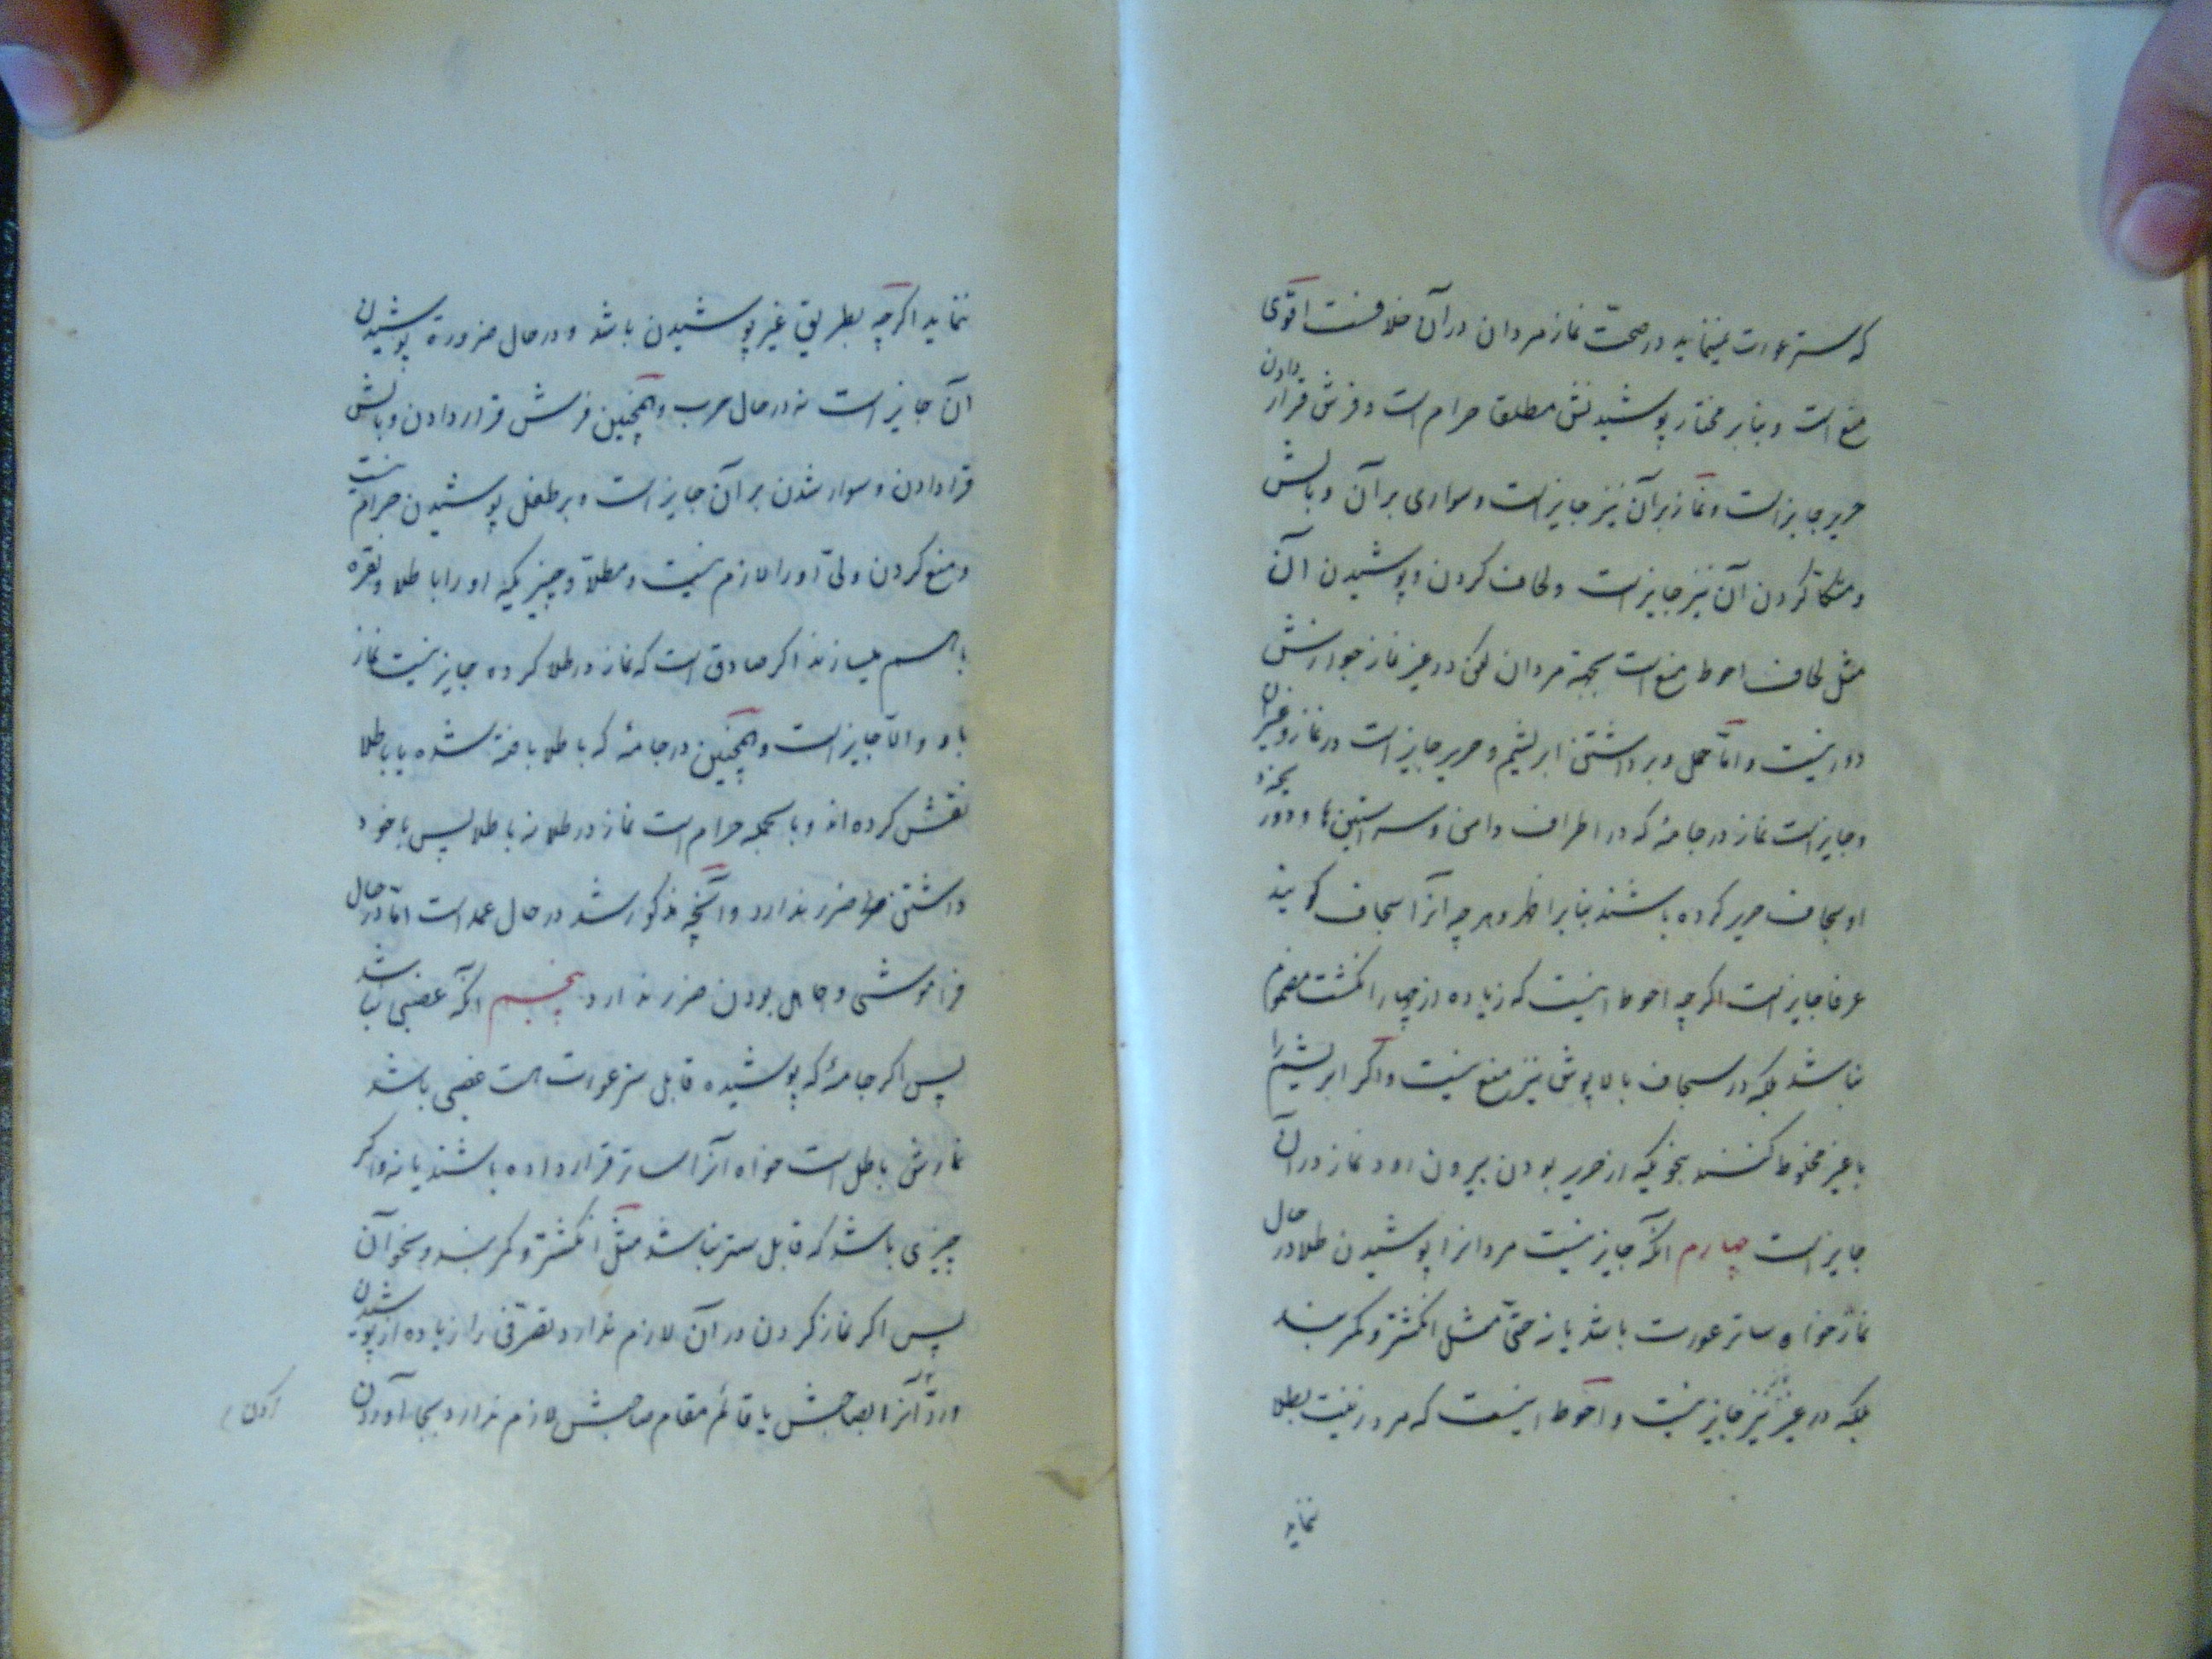 که ستر عورت مینماید در صحّت نماز مردان در آن خلافست اقوی
منع است و بنابر مختار پوشیدنش مطلقا حرام است و فرش قرار دادن
حریر جایز است و نماز بر آن نیز جایز است و سواری بر آن و بالش
و متکا کردن آن نیز جایز است و لحاف کردن و پوشیدن آن
مثل لحاف احوط منع است بجهة مردان لکن در غیر نماز جوازش
دور نیست و امّا حمل و برداشتن ابریشم و حریر جایز است در نماز و غیر آن
و جایز است نماز در جامهٔ که در اطراف دامن و سر آستین ها و دور
او سجاف حریر کرده باشند بنابر اظهر و هر چه آنرا سجاف گویند
عرفا جایز است اگرچه احوط اینست که زیاده از چهار انگشت مضموم
نباشد بلکه در سجاف بالاپوش نیز منع نیست و اگر ابریشم را
با غیر مخلوط کنند بنحویکه از حریر بودن بیرون رود نماز در آن
جایز است چهارم آنکه جایز نیست مردانرا پوشیدن طلا در حال
نماز خواه ساتر عورت باشد یا نه حتّی مثل انگشتر و کمربند
بلکه در غیر نیز جایز نیست و احوط اینست که مرد زینت بطلا
ننماید
ننماید اگرچه بطریق غیر پوشیدن باشد و در حال ضرورة پوشیدن
آن جایز است نه در حال حرب و همچنین فرش قرار دادن و بالش
قرار دادن و سوار شدن بر آن جایز است و بر طفل پوشیدن حرام نیست
و منع کردن ولیّ او را لازم نیست و مطلّا و چیزیکه او را با طلا و نقره
باسم میسازند اگر صادق است که نماز در طلا کرده جایز نیست نماز
با و و الّا جایز است و همچنین در جامهٔ که با طلا بافته شده یا با طلا
نقش کرده اند و بالجمله حرام است نماز در طلا نه با طلا پس با خود
داشتن طلا ضرر ندارد و آنچه مذکور شد در حال عمد است امّا در حال
فراموشی و جاهل بودن ضرر ندارد پنجم آنکه غصبی نباشد
پس اگر جامهٔ که پوشیده قابل ستر عورت است غصبی باشد
نمازش باطل است خواه آنرا ساتر قرار داده باشند یا نه و اگر
چیزی باشد که قابل ستر نباشد مثل انگشتر و کمربند و نحو آن
پس اگر نماز کردن در آن لازم ندارد تصرّفی را زیاده از پوشیدن
و ردّ آنرا بصاحبش یا قائم مقام صاحبش لازم ندارد بجا آوردن